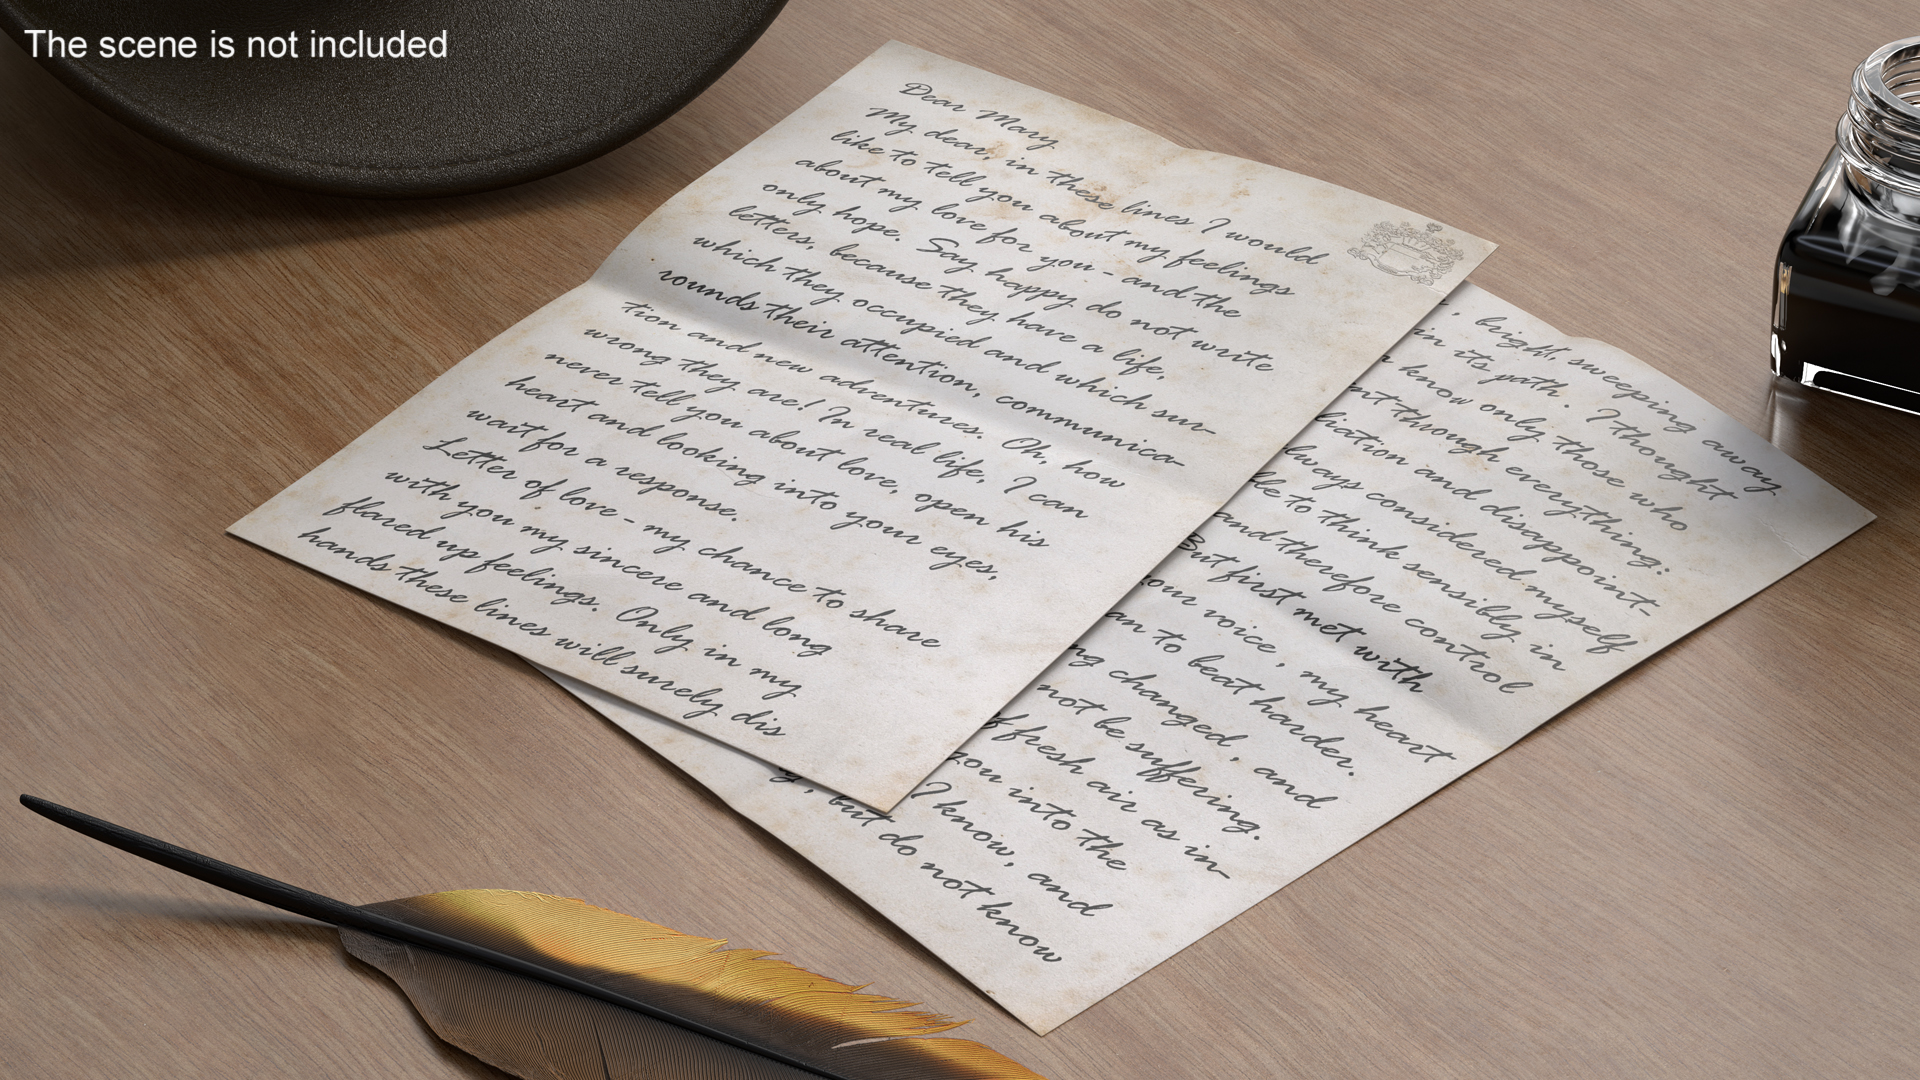 The scene is not included
Dear Mary
My dear, in these lines I would
like to tell you about my feelings
about my love for you - and the
only hope. Say happy do not write
letters, because they have a life,
which they occupied and which sur-
rounds their attention, communica-
tion and new adventures. Oh, how
wrong they are! In real life, I can
never tell you about love, open his
heart and looking into your eyes,
wait for a response.
Letter of love - my chance to share
with you my sincere and long
flared up feelings. Only in my
hands these lines will surely dis
, bright, sweeping away
in its path. I thought
know only those who
through everything:
and disappoint-
always considered myself
to think sensibly in
and therefore control
But first met with
your voice, my heart
to beat harder.
changed, and
not be suffering.
of fresh air as in-
you into the
I know, and
, but do not know